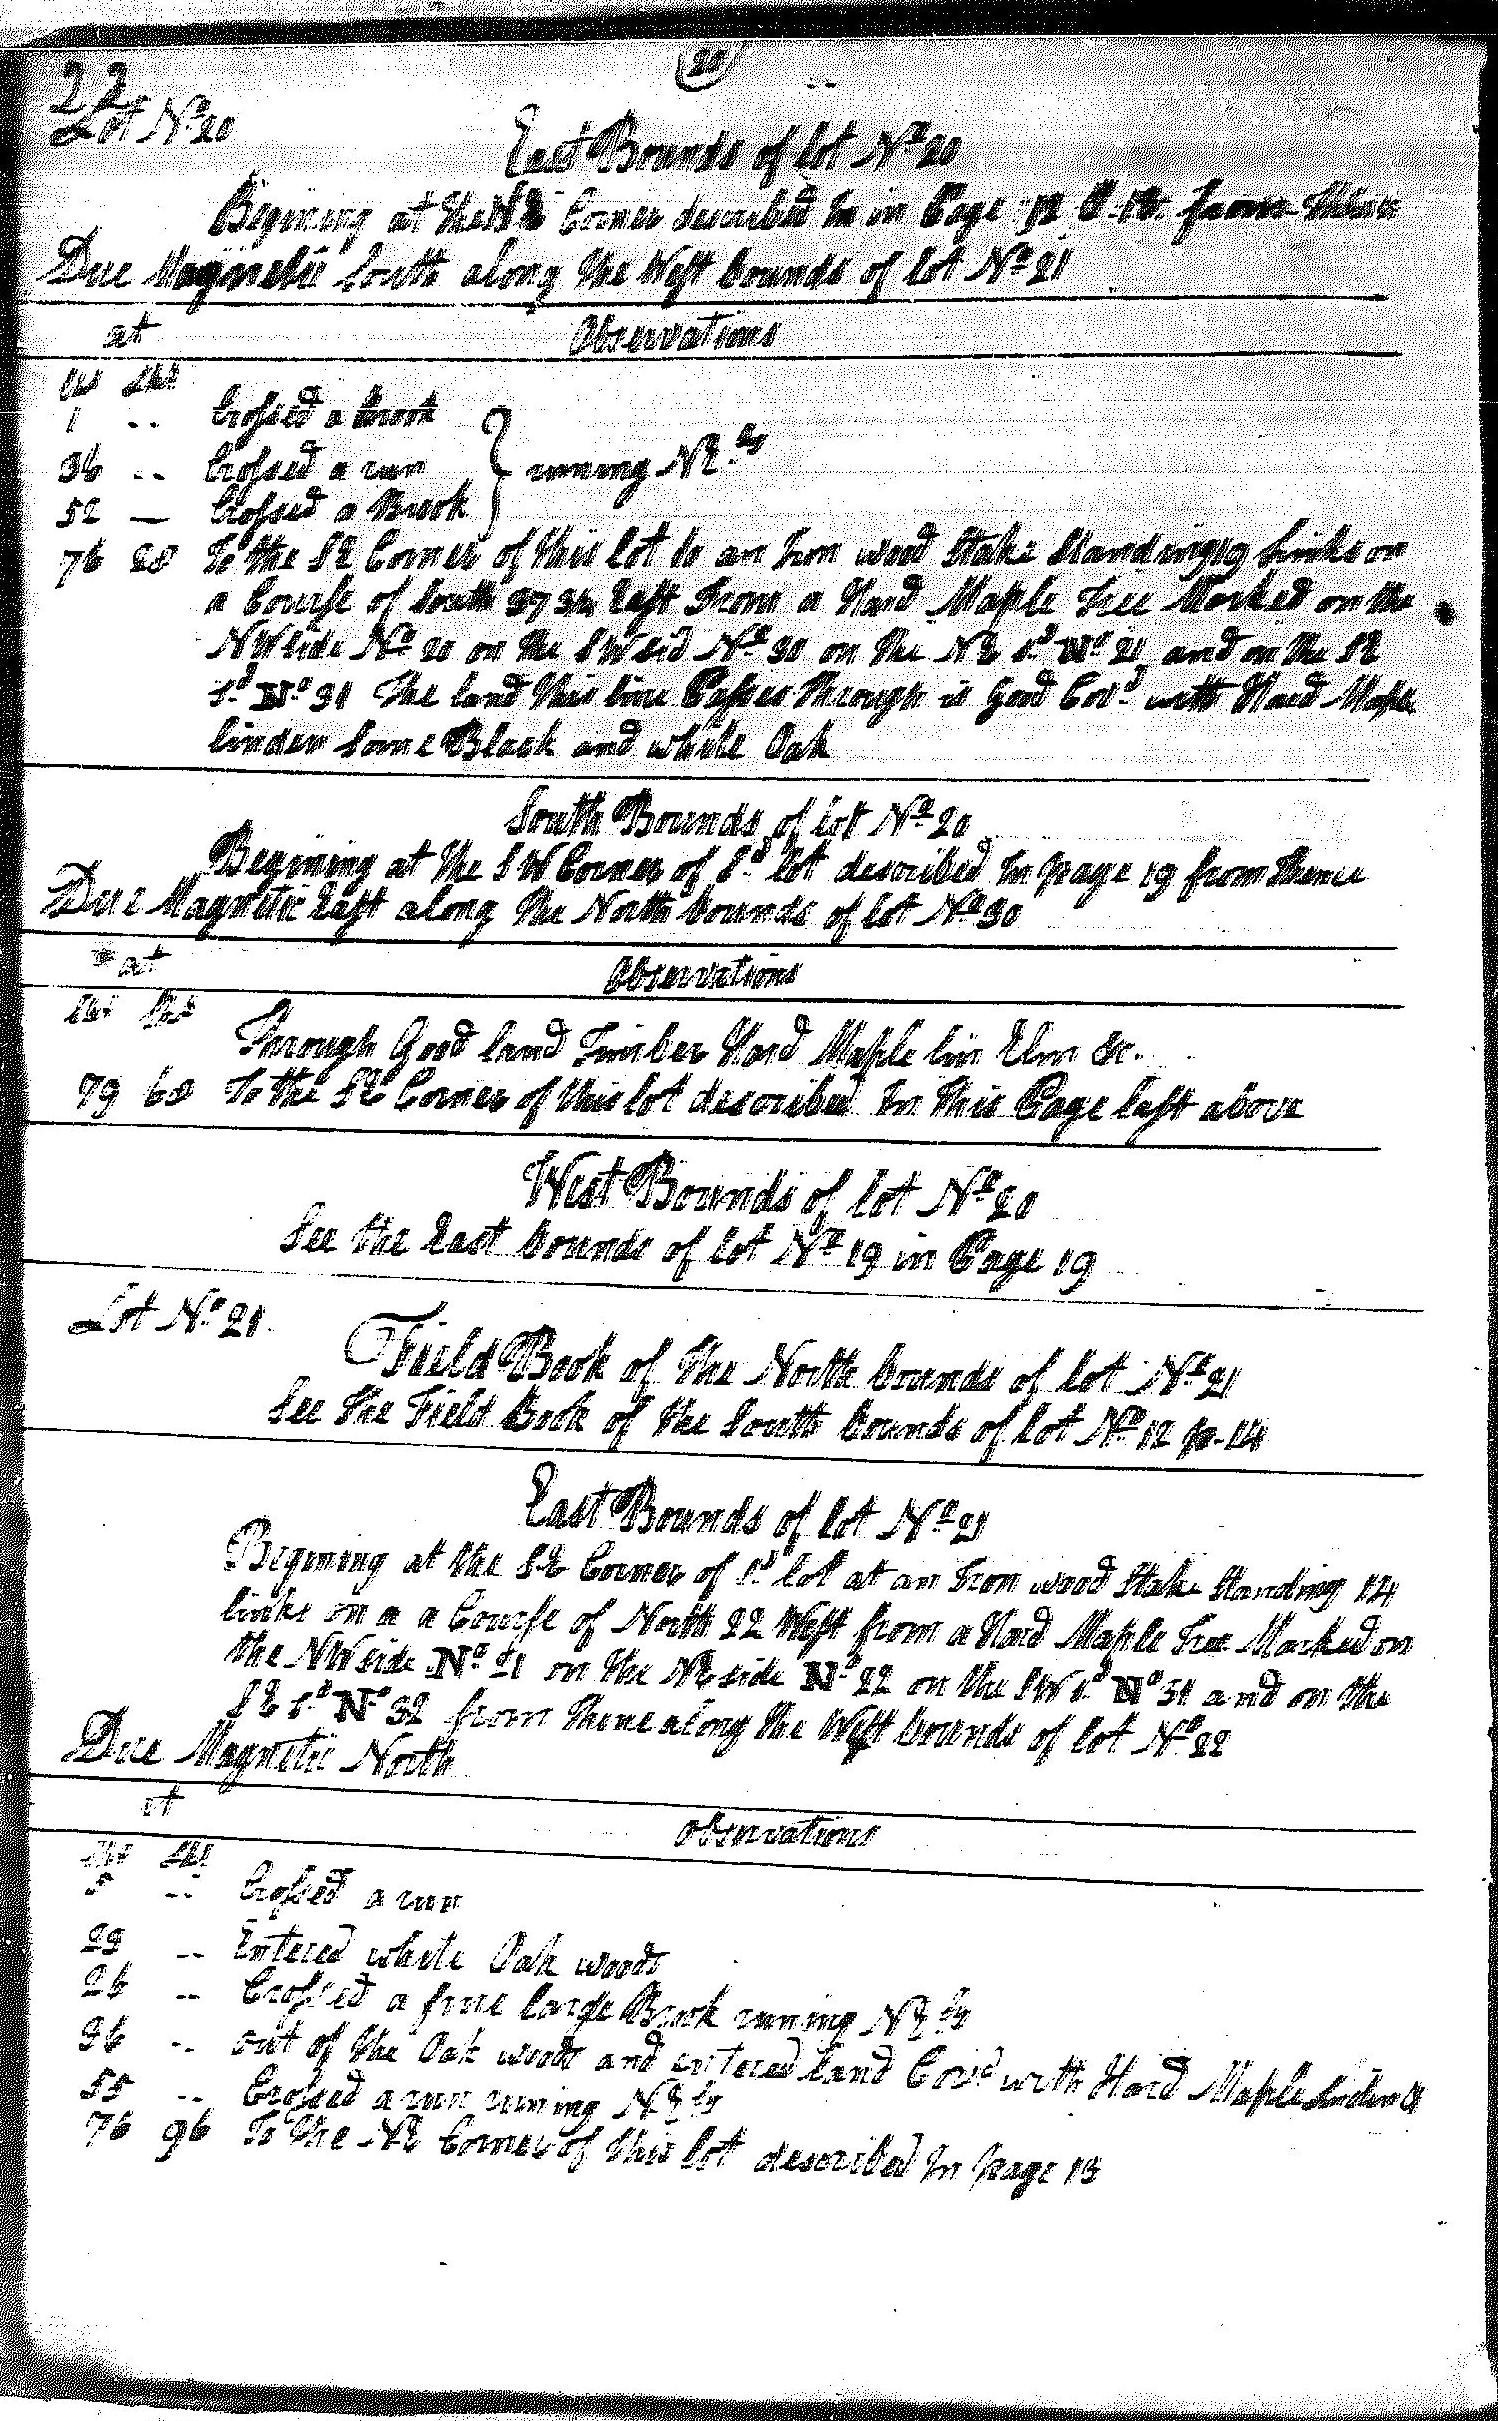 22
20
Lot No 20
East Bounds of lot No 20
Begining at the NE Corner described in in Page 12 from thence
Due Magnetic South along the West bounds of lot No 21
at Observations
Chs Lks
1 .. Crossed a brook
36 .. Crossed a run } runing NE.ly
52 — Crossed a Brook
76 28 To the SE Corner of this lot to an Iron wood Stake Standing 19 Links on
a Course of South 37 East From a Hard Maple Tree Marked on the
NW side No 20 on the SW sid No 30 on the NE sd No 21 and on the SE
sd No 31 The land this line Passes through is Good Covd with Hard Maple
linden Some Black and white Oak
South Bounds of lot No 20
Begining at the SW Corner of sd lot described In page 19 from thence
Due Magnetic East along the North bounds of lot No 30
at Observations
Chs Lks
Through Good land Timber Hard Maple lin Elm &c.
79 68 To the SE Corner of this lot described In this Page last above
West Bounds of lot No 20
See the East bounds of lot No 19 in Page 19
Lot No 21
Field Book of the North bounds of lot No 21
See the Field Book of the South bounds of lot No 12 p. 14
East Bounds of lot No 21
Begining at the SE Corner of sd lot at an Iron wood Stake Standing 14
links on a a Course of North 22 West from a Hard Maple Tree Marked on
the NW side No 21 on the NE side No 22 on the SW sd No 31 and on the
SE sd No 32 from thence along the West bounds of lot No 22
Due Magnetic North
at Observations
Chs Lks
5 .. Crossed a run
23 .. Entered white Oak woods
26 .. Crossed a fine large Brook runing NE.ly
36 .. out of the Oak woods and entered land Covd with Hard Maple Linden &
55 .. Crossed a run runing NE ly
76 96 To the NE Corner of this lot described In page 13